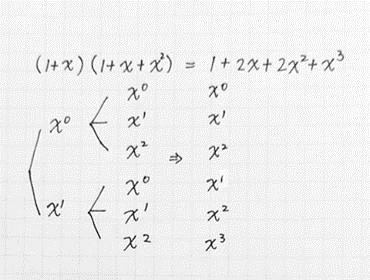 (1+x)(1+x+x²) = 1+2x+2x²+x³
x⁰ x⁰
x⁰ x¹ x¹
x² ⇒ x²
x⁰ x¹
x¹ x¹ x²
x² x³